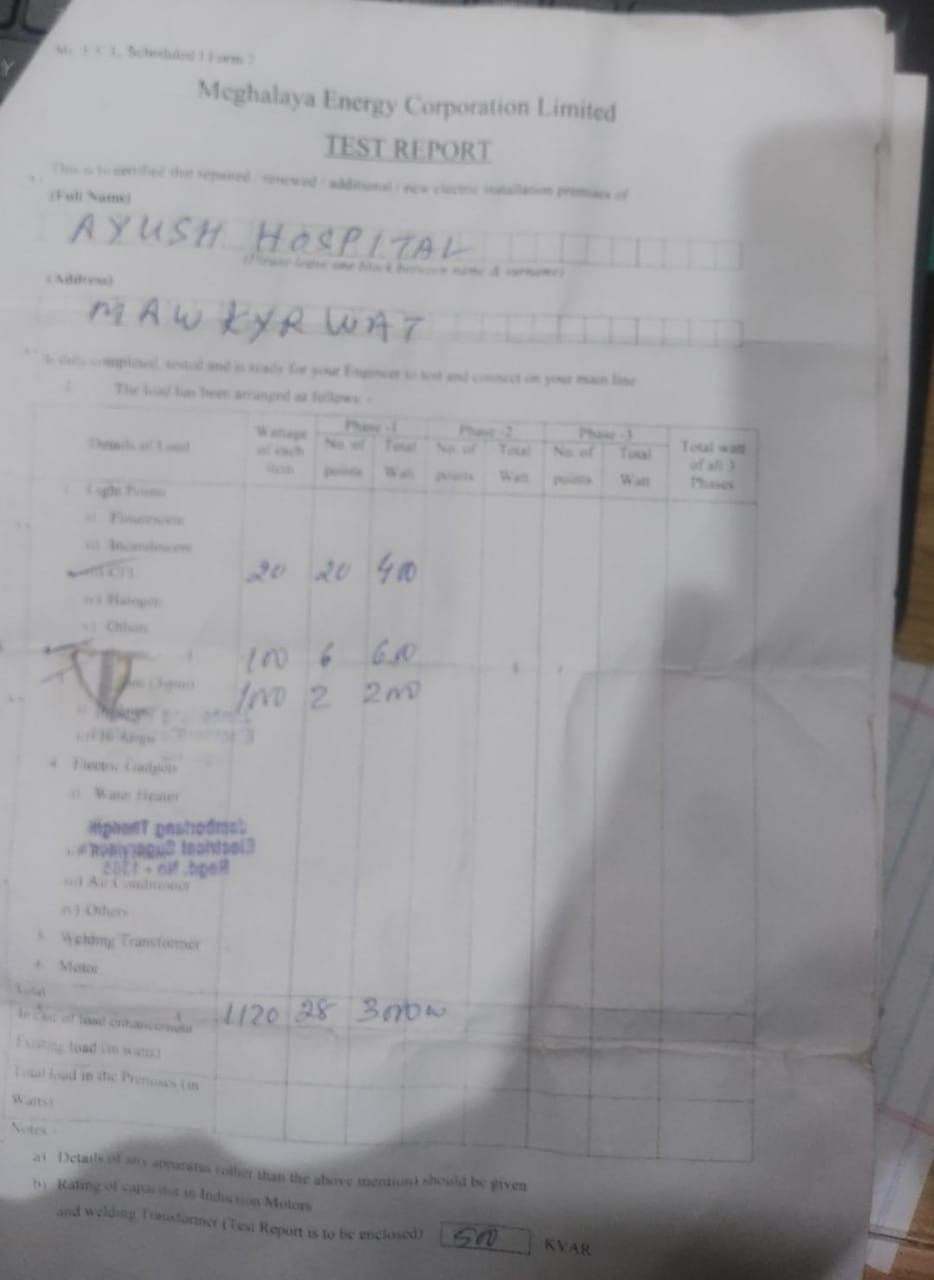 Scheduled Form
Meghalaya Energy Corporation Limited
TEST REPORT
This is to certified that repaired / renewed / additional / new electric installation premises of
(Full Name)
AYUSH HOSPITAL
(Please leave one block between name & surname)
(Address)
MAWKYRWAT
is duly completed, tested and is ready for your Engineer to test and connect on your main line
The load has been arranged as follows: -
Details of Load Wattage of each item Phase -1 Phase -2 Phase -3 Total watt of all 3 Phases
No. of points Total Watt No. of points Total Watt No. of points Total Watt
Light Points
i) Fluorescent
ii) Incandescent
CFL 20 20 400
iv) Halogen
v) Others
100 6 600
1000 2 2000
4 Electric Gadgets
i) Water Heater
Electrical Supervisor
Regd. No -
iii) Air Conditioner
iv) Others
5 Welding Transformer
6 Motor
Total 1120 28 3000w
In case of load enhancement
Existing load (in watts)
Total load in the Premises (in
Watts)
Notes -
a) Details of any apparatus (other than the above mention) should be given
b) Rating of capacitor in Induction Motors
and welding Transformer (Test Report is to be enclosed) 500 KVAR